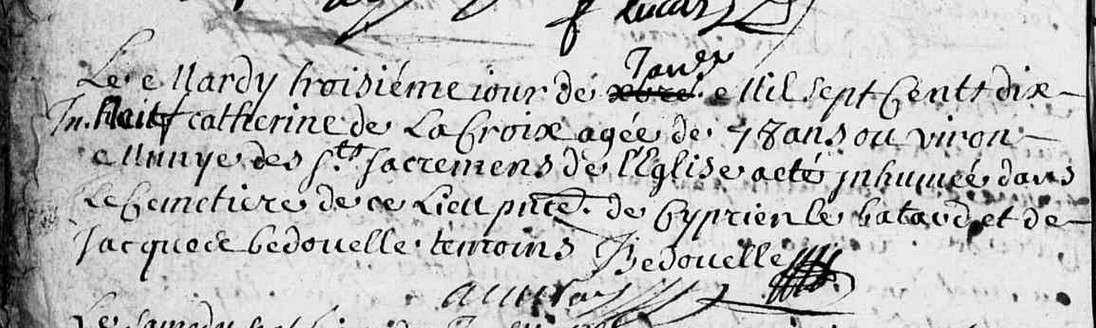 Lucas
Janer
Le Mardy troisiéme jour de xbre Mil Sept Cents dix
huit catherine de La Croix agée de 78 ans ou viron
Munye des Sts Sacremens de l'Eglise a eté inhumée dans
Le Cemetiere de ce Lieu pnce. de Cyprien le batard et de
Jacque de bedouelle temoins Bedouelle